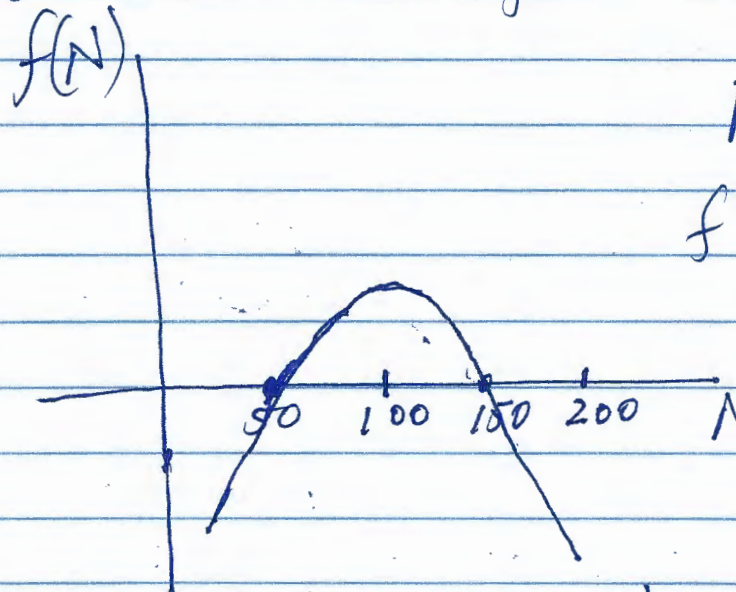 f(N)
f
50 100 150 200 N